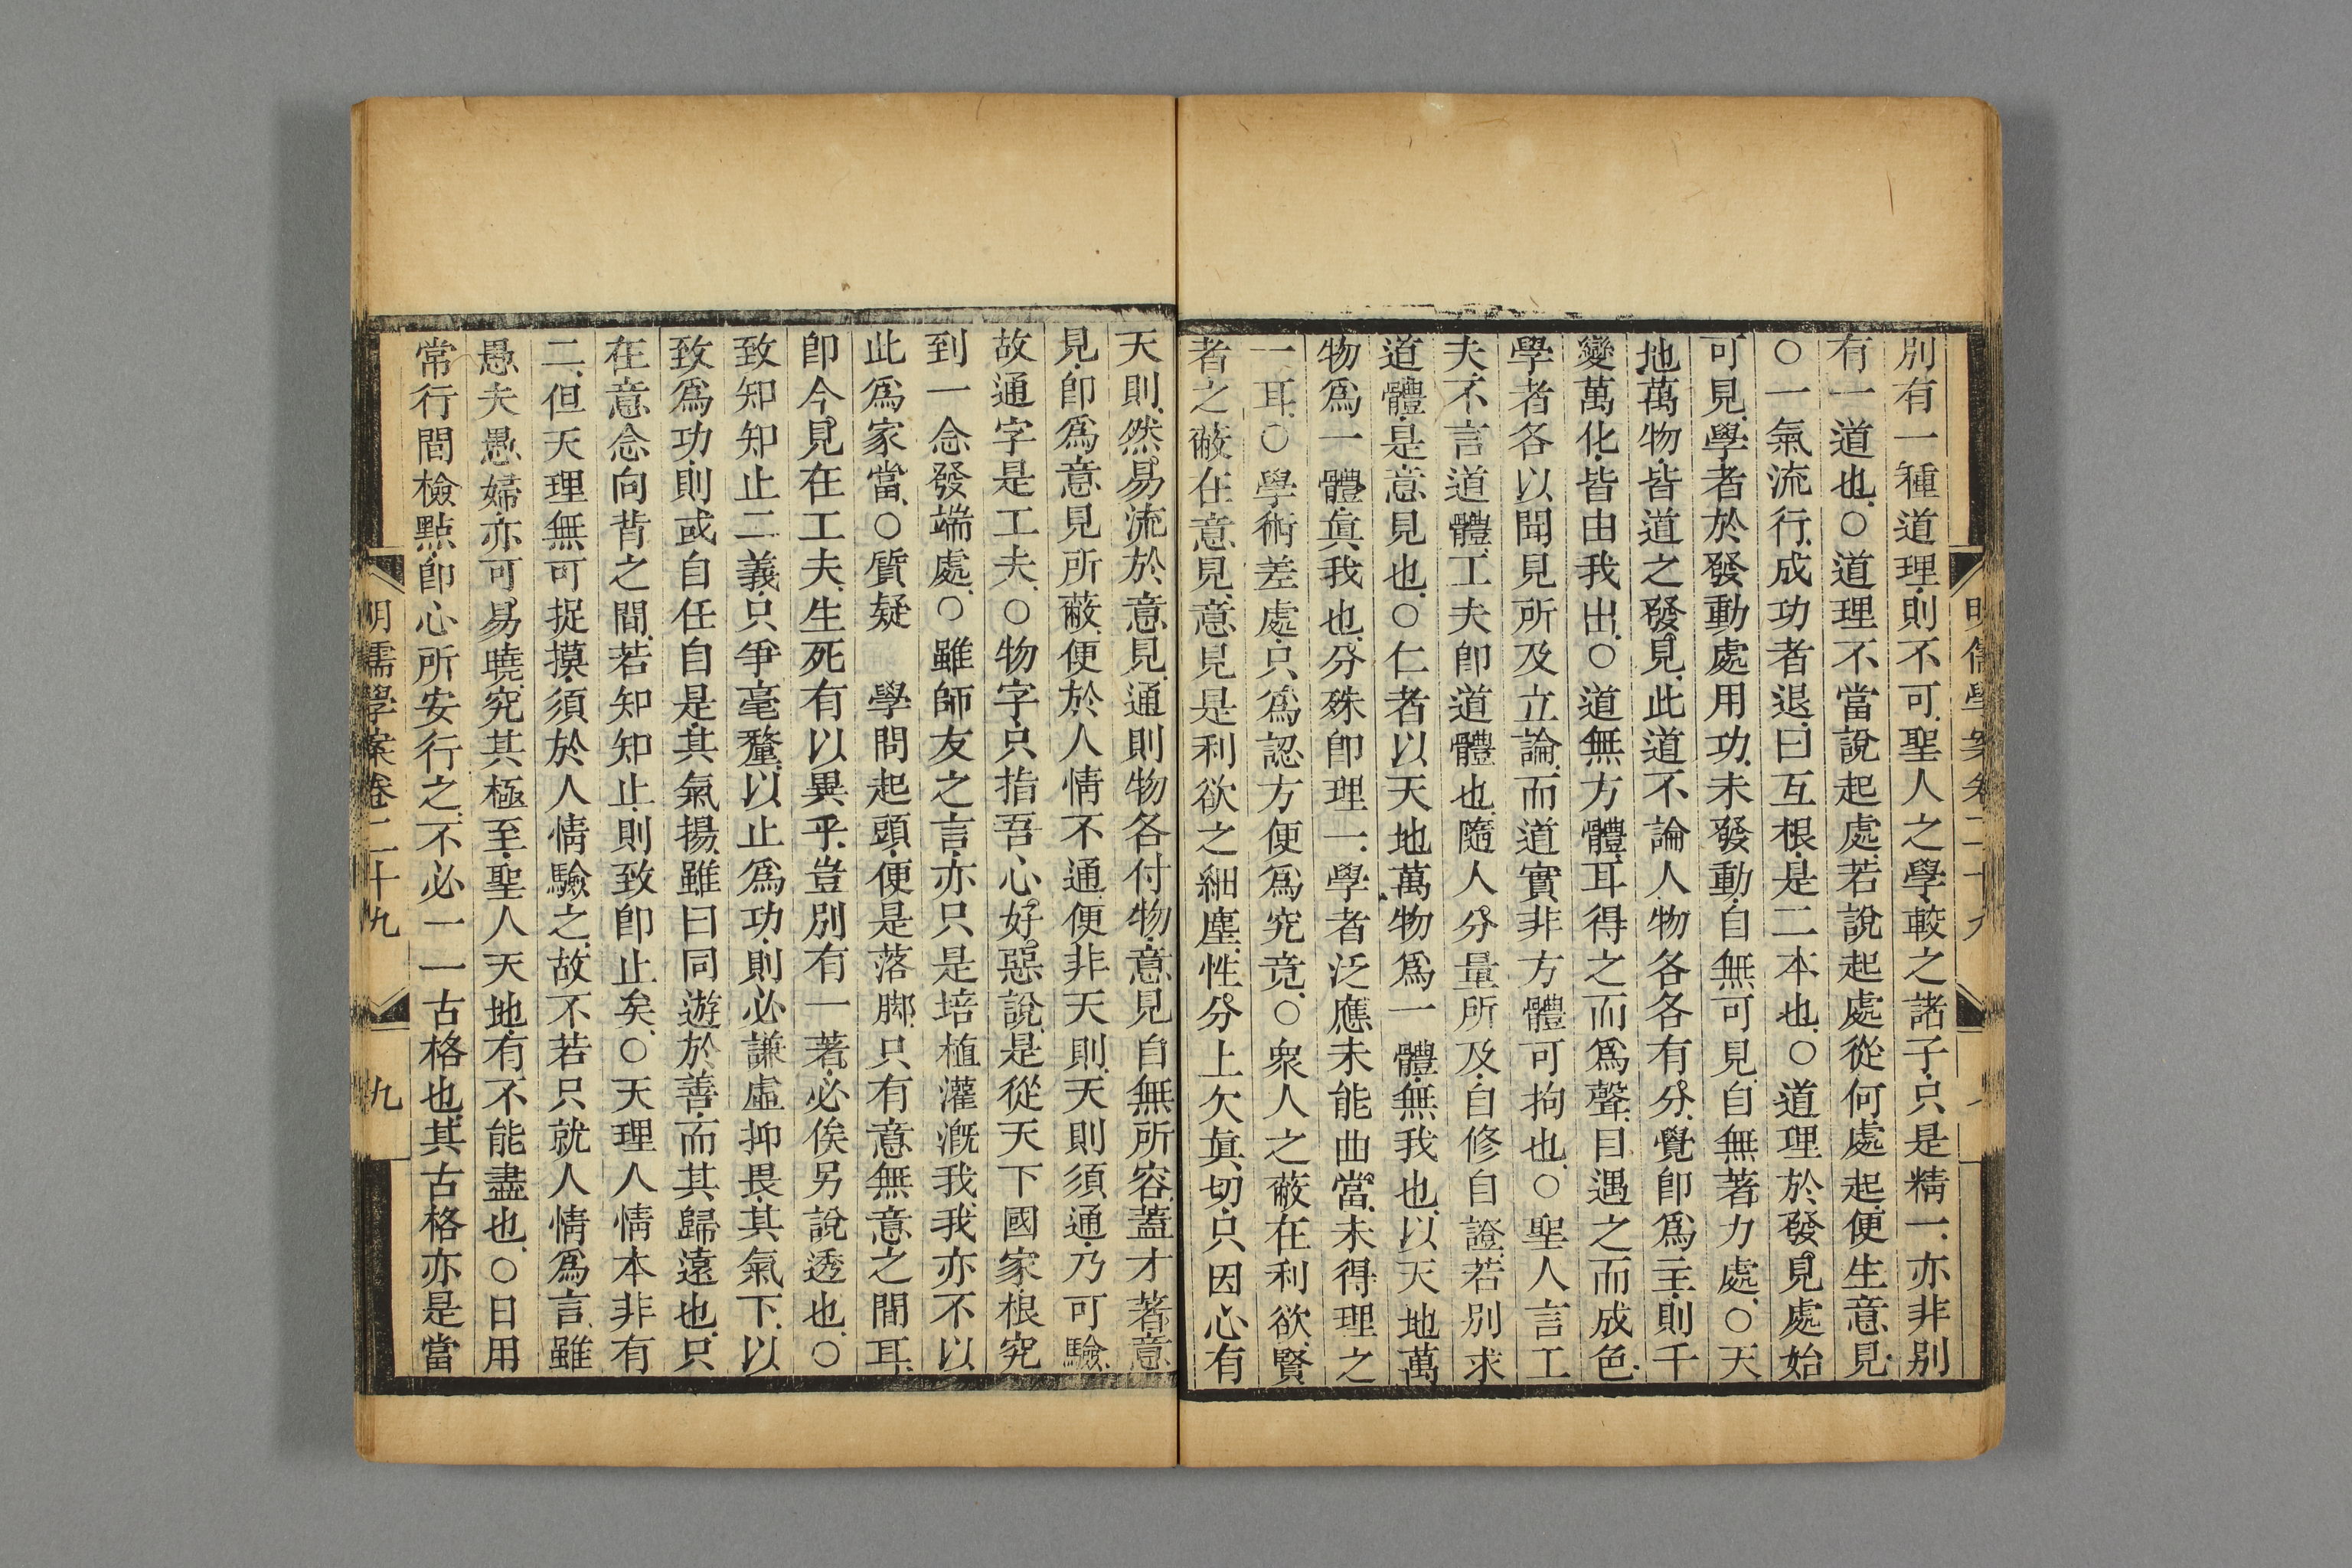 別有一種道理則不可聖人之學較之諸子只是精一亦非別
有一道也○道理不當說起處若說起處從何處起便生意見
○一氣流行成功者退曰互根是二本也○道理於發見處始
可見學者於發動處用功未發動自無可見自無著力處○天
地萬物皆道之發見此道不論人物各各有分覺卽爲主則千
變萬化皆由我出○道無方體耳得之而爲聲目遇之而成色
學者各以聞見所及立論而道實非方體可拘也○聖人言工
夫不言道體工夫卽道體也隨人分量所及自修自證若別求
道體是意見也○仁者以天地萬物爲一體無我也以天地萬
物爲一體眞我也分殊卽理一學者泛應未能曲當未得理之
一耳○學術差處只爲認方便爲究竟○衆人之蔽在利欲賢
者之蔽在意見意見是利欲之細塵性分上欠眞切只因心有
天則然易流於意見通則物各付物意見自無所容蓋才著意
見卽爲意見所蔽便於人情不通便非天則天則須通乃可驗
故通字是工夫○物字只指吾心好惡說是從天下國家根究
到一念發端處○雖師友之言亦只是培植灌漑我我亦不以
此爲家當○質疑 學問起頭便是落脚只有意無意之間耳
卽今見在工夫生死有以異乎豈別有一著必俟另說透也○
致知知止二義只爭毫釐以止爲功則必謙虛抑畏其氣下以
致爲功則或自任自是其氣揚雖曰同遊於善而其歸遠也只
在意念向背之間若知知止則致卽止矣○天理人情本非有
二但天理無可捉摸須於人情驗之故不若只就人情爲言雖
愚夫愚婦亦可易曉究其極至聖人天地有不能盡也○日用
常行間檢點卽心所安行之不必一一古格也其古格亦是當
明儒學案卷二十九 九